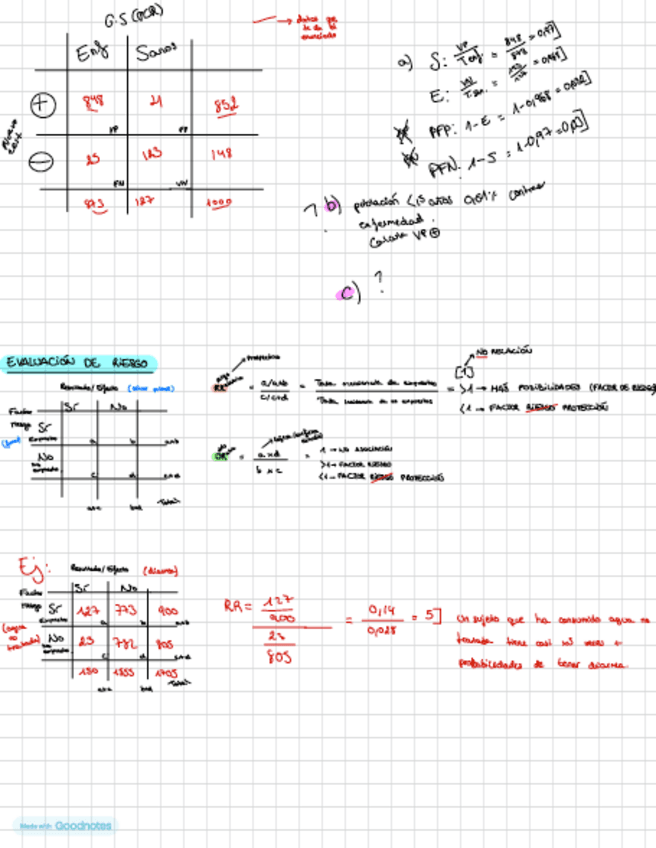 G.S (PCR)
→ datos que te da el enunciado
Enf Sanos
+ 848 21 852
VP FP
Nuevo test
- 25 123 148
FN VN
873 127 1000
a) S: VP/Tenf = 848/873 = 0,97]
E: VN/Tsan = 123/127 = 0,968]
PFP: 1-E = 1-0,968 = 0,032]
PFN: 1-S = 1-0,97 = 0,03]
b) población <15 años 0,01% contrae
enfermedad.
Calcula VP⊕
c) ?
EVALUACIÓN DE RIESGO
Resultado/Efecto
Factor Sí No
Riesgo Sí
Expuestos a b a+b
No expuestos
c d c+d
a+c b+d Total
prospectivo
NO RELACIÓN
[1]
RR = a/a+b / c/c+d = Tasa incidencia de expuestos / Tasa incidencia de no expuestos = >1 → MÁS POSIBILIDADES (FACTOR DE RIESGO)
<1 → FACTOR RIESGO PROTECCIÓN
OR = a x d / b x c = 1 → NO ASOCIACIÓN
>1 → FACTOR RIESGO
<1 → FACTOR RIESGO PROTECCIÓN
Ej:
Resultado/Efecto (diarrea)
Factor Sí No
Riesgo Sí 127 773 900
Expuestos a b a+b
(agua no tratada)
No expuestos 23 782 805
c d c+d
150 1555 1705
a+c b+d Total
RR = 127/900 / 23/805 = 0,14/0,028 = 5]
Un sujeto que ha consumido agua no
tratada tiene casi veces +
probabilidades de tener diarrea.
Made with Goodnotes